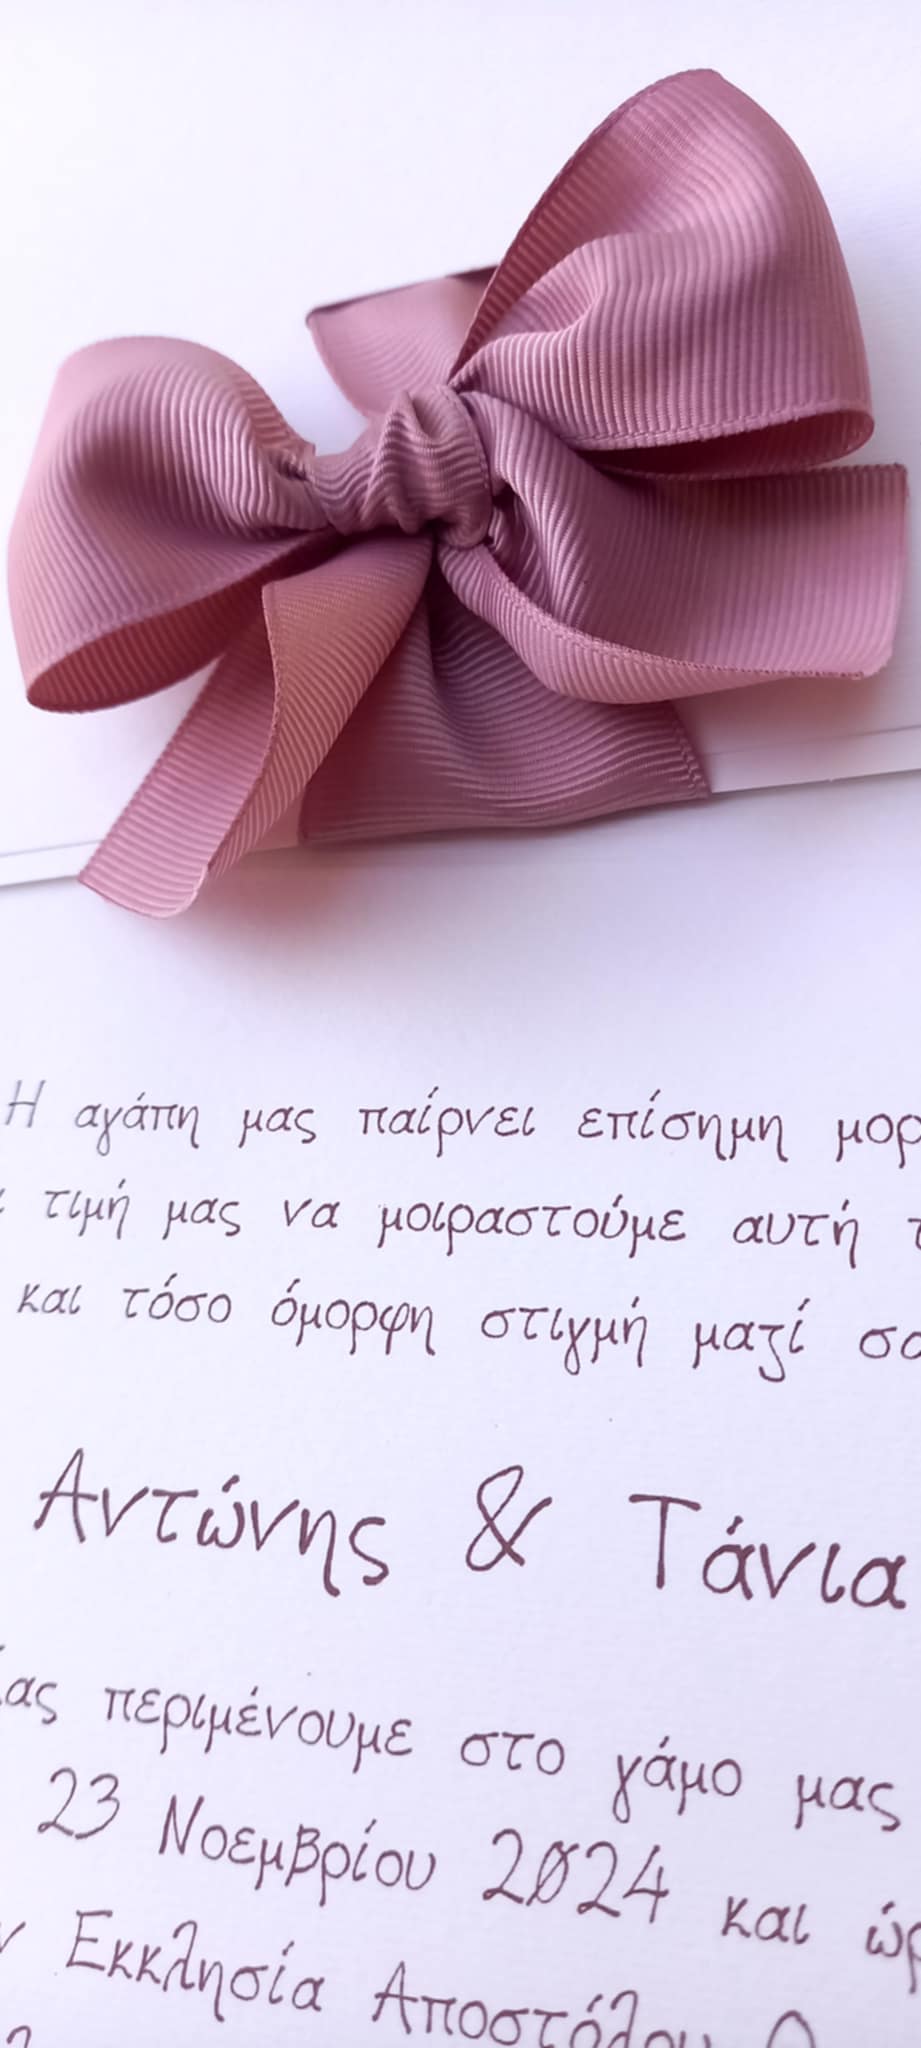 Η αγάπη μας παίρνει επίσημη μορ
τιμή μας να μοιραστούμε αυτή τ
και τόσο όμορφη στιγμή μαζί σα
Αντώνης & Τάνια
Σας περιμένουμε στο γάμο μας
23 Νοεμβρίου 2024 και ώρ
ν Εκκλησία Αποστόλου